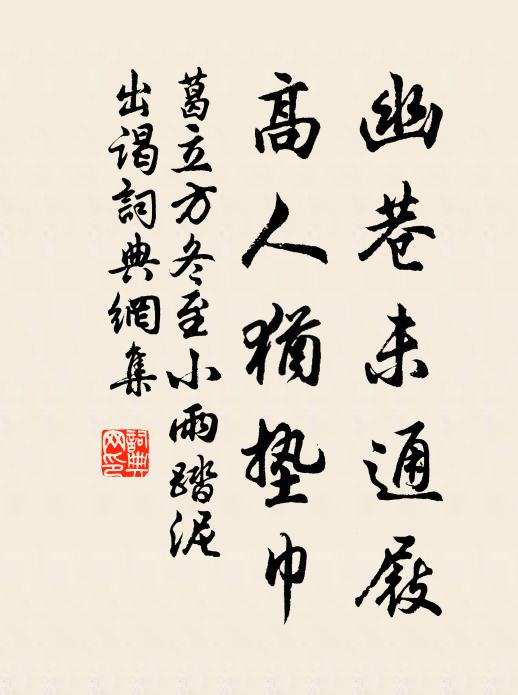 幽巷未通屐
高人猶墊巾
葛立方冬至小雨踏泥
出谒詞典網集
詞典網印